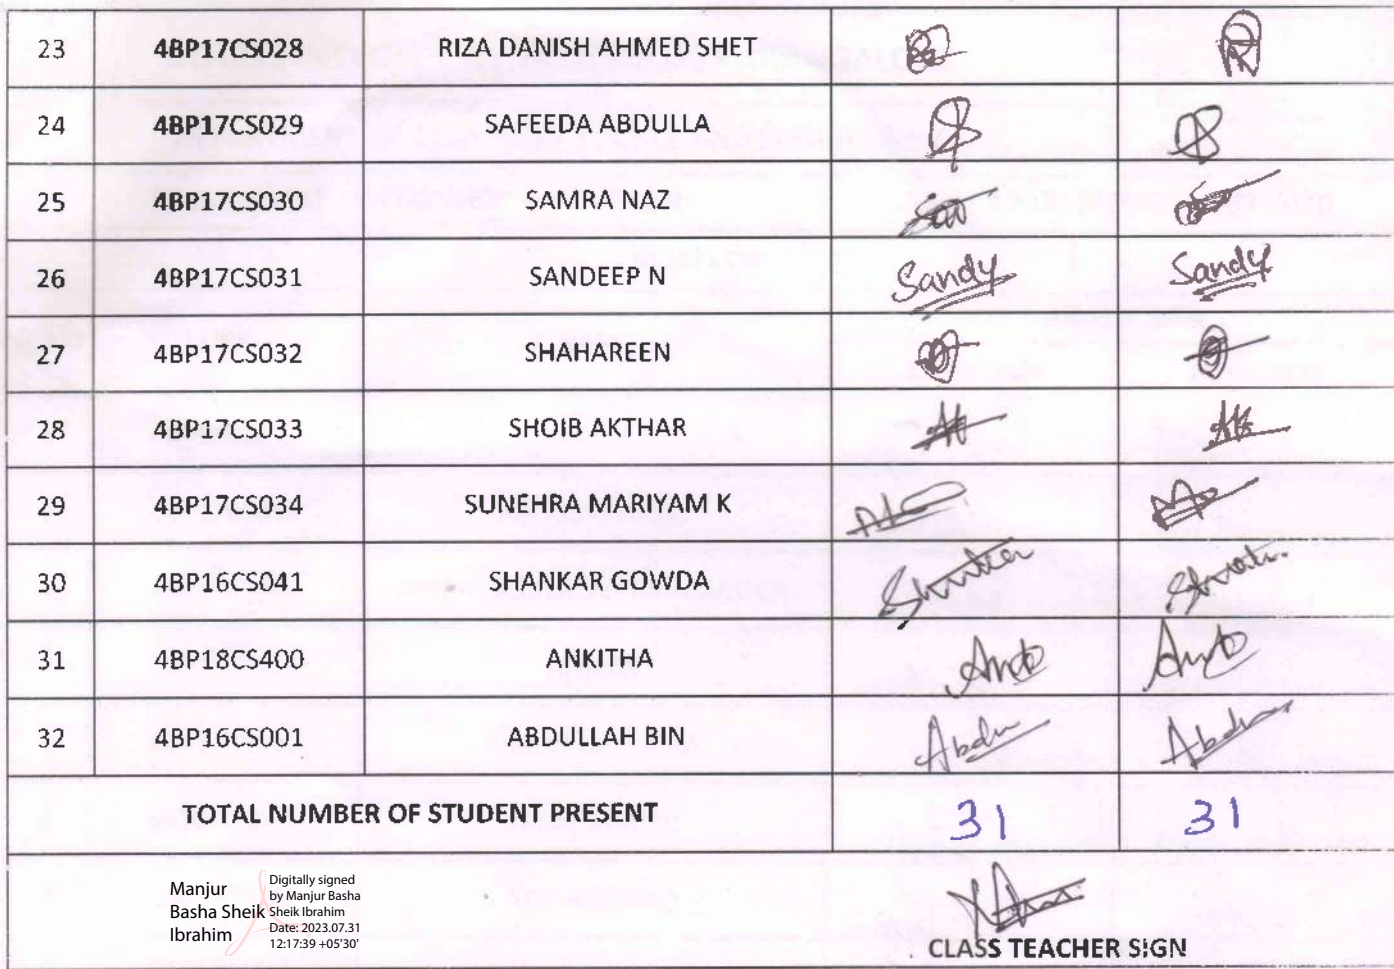 23 4BP17CS028 RIZA DANISH AHMED SHET
24 4BP17CS029 SAFEEDA ABDULLA
25 4BP17CS030 SAMRA NAZ
26 4BP17CS031 SANDEEP N Sandy Sandy
27 4BP17CS032 SHAHAREEN
28 4BP17CS033 SHOIB AKTHAR
29 4BP17CS034 SUNEHRA MARIYAM K
30 4BP16CS041 SHANKAR GOWDA
31 4BP18CS400 ANKITHA
32 4BP16CS001 ABDULLAH BIN
TOTAL NUMBER OF STUDENT PRESENT 31 31
Manjur
Basha Sheik
Ibrahim
Digitally signed
by Manjur Basha
Sheik Ibrahim
Date: 2023.07.31
12:17:39 +05'30'
CLASS TEACHER SIGN